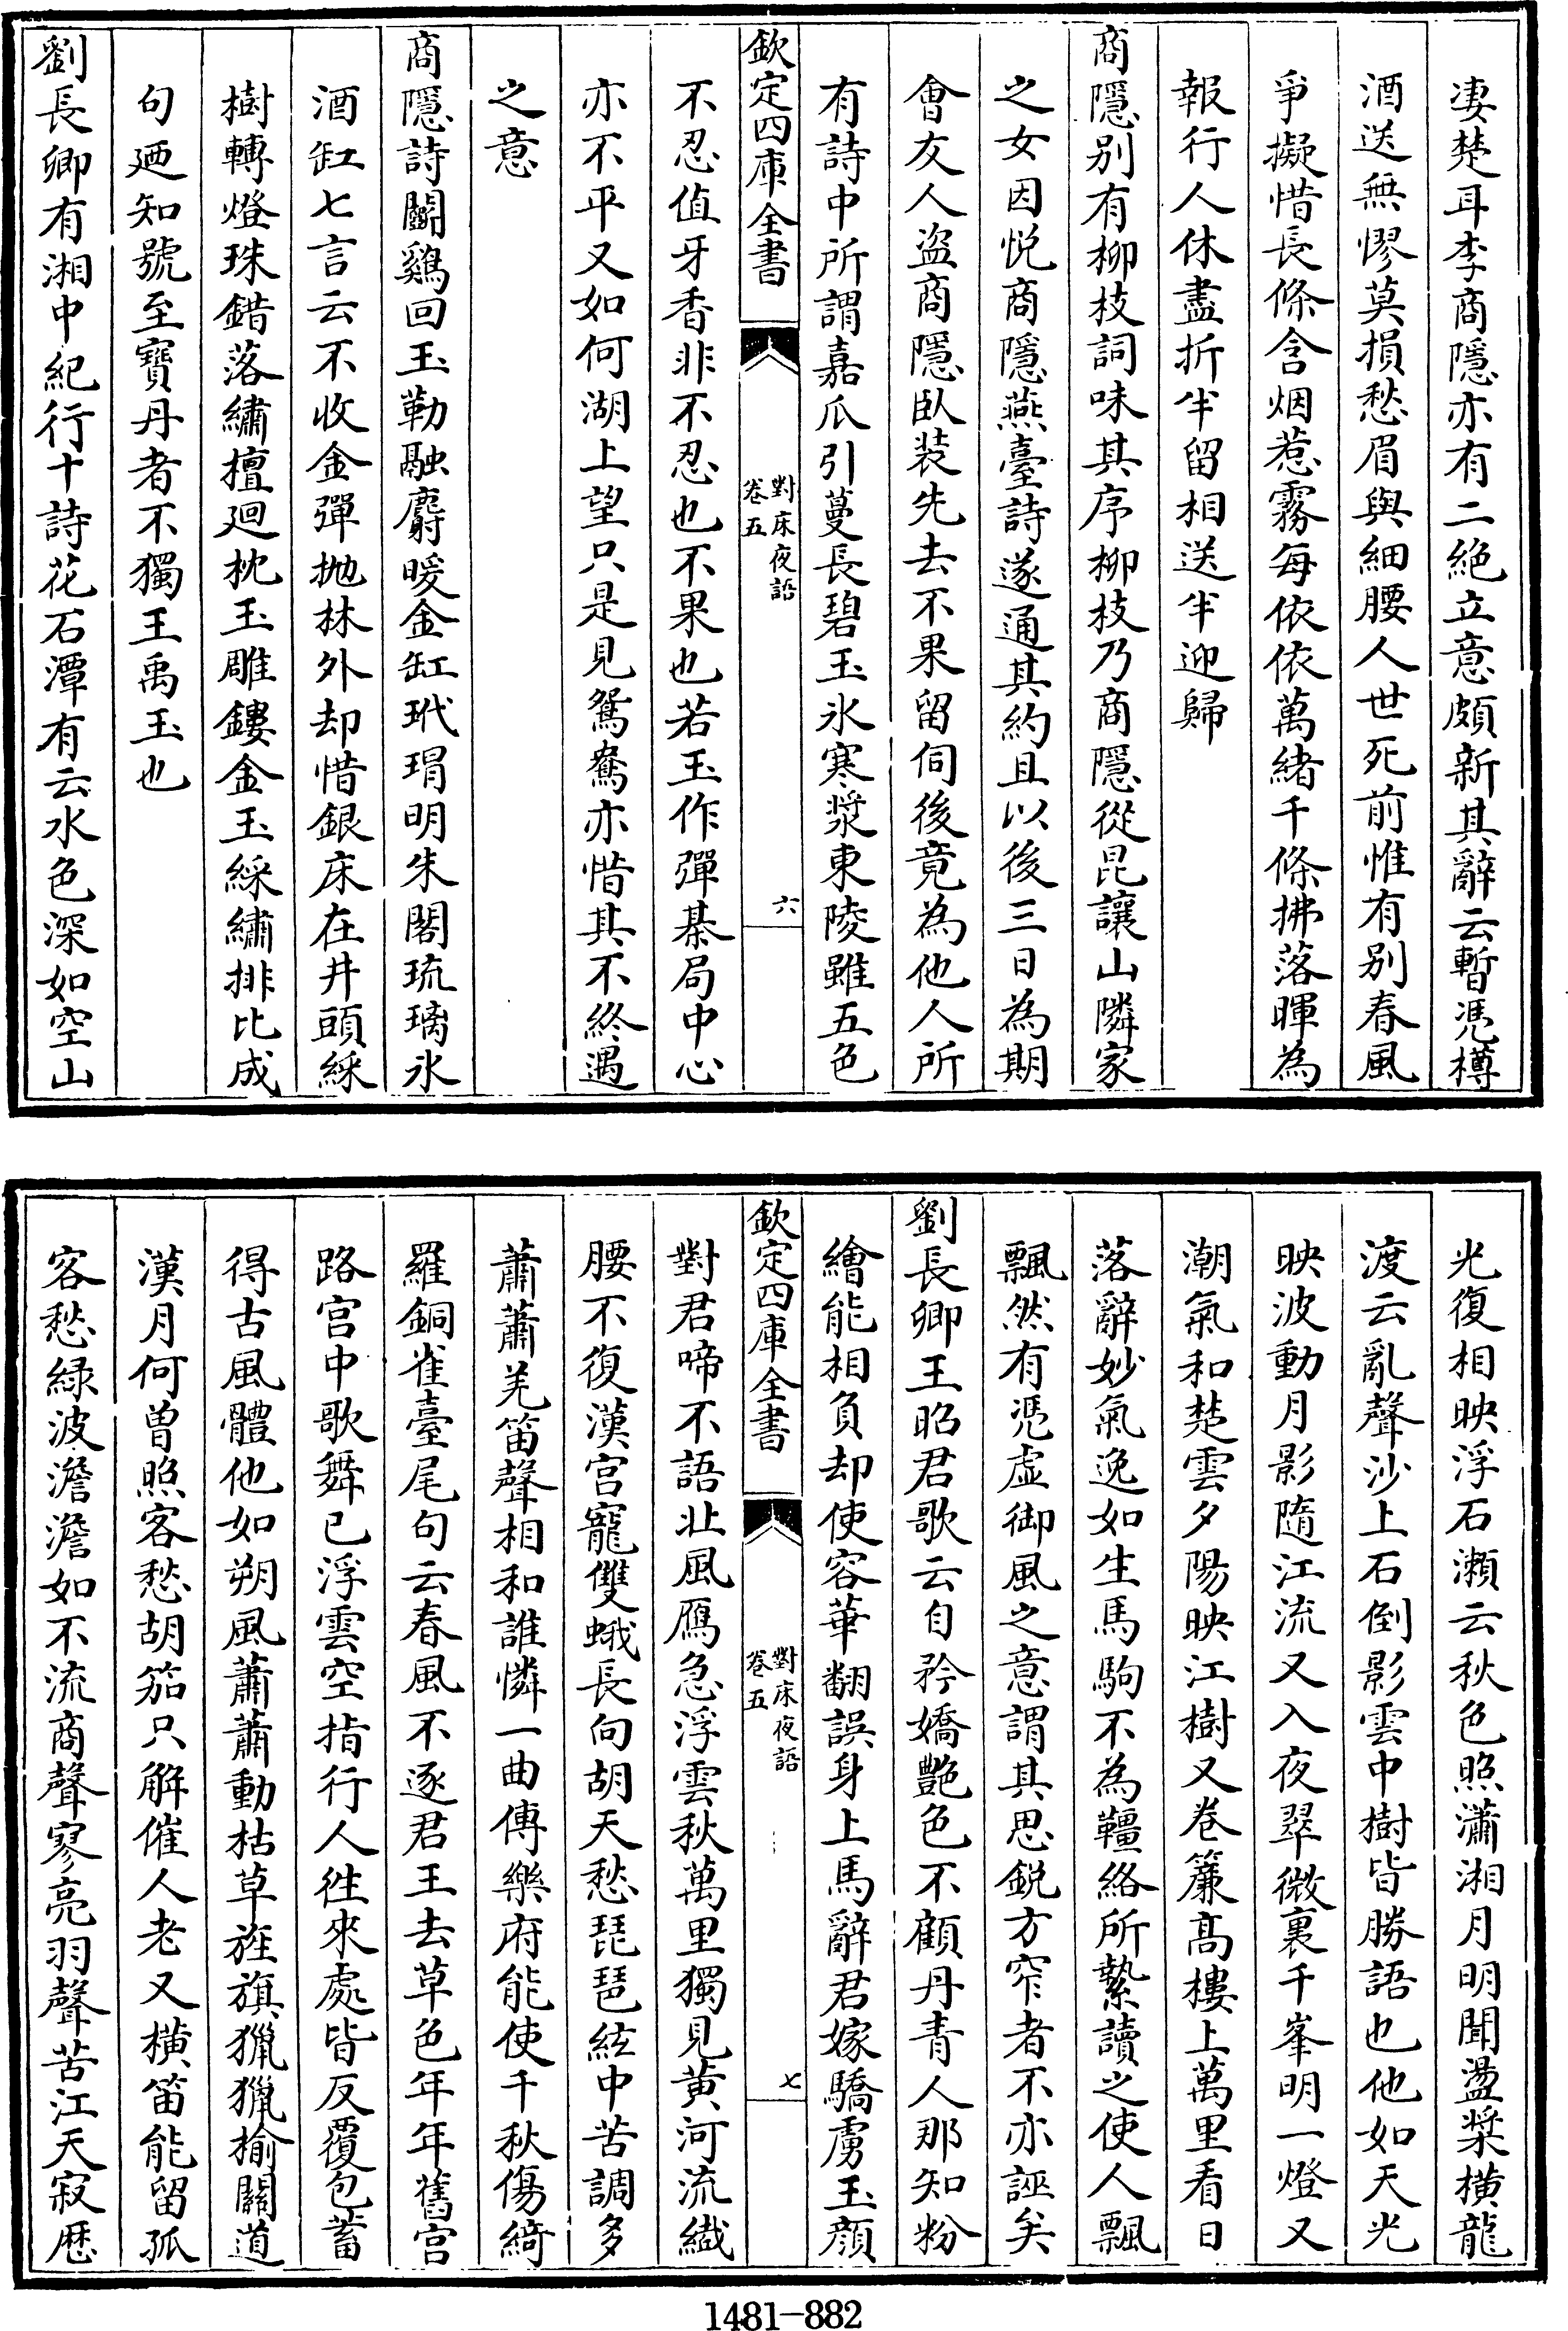 凄楚耳李商隱亦有二絶立意頗新其辭云暫凭樽
酒送無憀莫損愁眉與細腰人世死前惟有别春風
爭擬惜長條含烟惹霧每依依萬緒千條拂落暉為
報行人休盡折半留相送半迎歸
商隱别有柳枝詞味其序柳枝乃商隱從昆讓山隣家
之女因悦商隱燕臺詩遂通其約且以後三日為期
會友人盜商隱卧装先去不果留伺後竟為他人所
有詩中所謂嘉瓜引蔓長碧玉氷寒漿東陵雖五色
欽定四庫全書
對床夜語
卷五
六
不忍值牙香非不忍也不果也若玉作彈棊局中心
亦不平又如何湖上望只是見鴛鴦亦惜其不終遇
之意
商隱詩鬭鷄回玉勒融麝暖金缸玳瑁明朱閣琉璃氷
酒缸七言云不收金彈抛林外却惜銀床在井頭綵
樹轉燈珠錯落繡檀廻枕玉雕鏤金玉綵繡排比成
句廼知號至寶丹者不獨王禹玉也
劉長卿有湘中紀行十詩花石潭有云水色深如空山
光復相映浮石瀨云秋色照瀟湘月明聞盪槳横龍
渡云亂聲沙上石倒影雲中樹皆勝語也他如天光
映波動月影隨江流又入夜翠微裏千峯明一燈又
潮氣和楚雲夕陽映江樹又卷簾髙樓上萬里看日
落辭妙氣逸如生馬駒不為韁絡所縶讀之使人飄
飄然有凭虛御風之意謂其思鋭方窄者不亦誣矣
劉長卿王昭君歌云自矜嬌艶色不顧丹青人那知粉
繪能相負却使容華翻誤身上馬辭君嫁驕虜玉顔
欽定四庫全書
對床夜語
卷五
七
對君啼不語北風鴈急浮雲秋萬里獨見黄河流纎
腰不復漢宫寵雙蛾長向胡天愁琵琶絃中苦調多
蕭蕭羌笛聲相和誰憐一曲傳樂府能使千秋傷綺
羅銅雀臺尾句云春風不逐君王去草色年年舊宫
路宫中歌舞已浮雲空指行人徃來處皆反覆包蓄
得古風體他如朔風蕭蕭動枯草旌旗獵獵榆關道
漢月何曽照客愁胡笳只解催人老又横笛能留孤
客愁緑波澹澹如不流商聲寥亮羽聲苦江天寂歴
1481-882